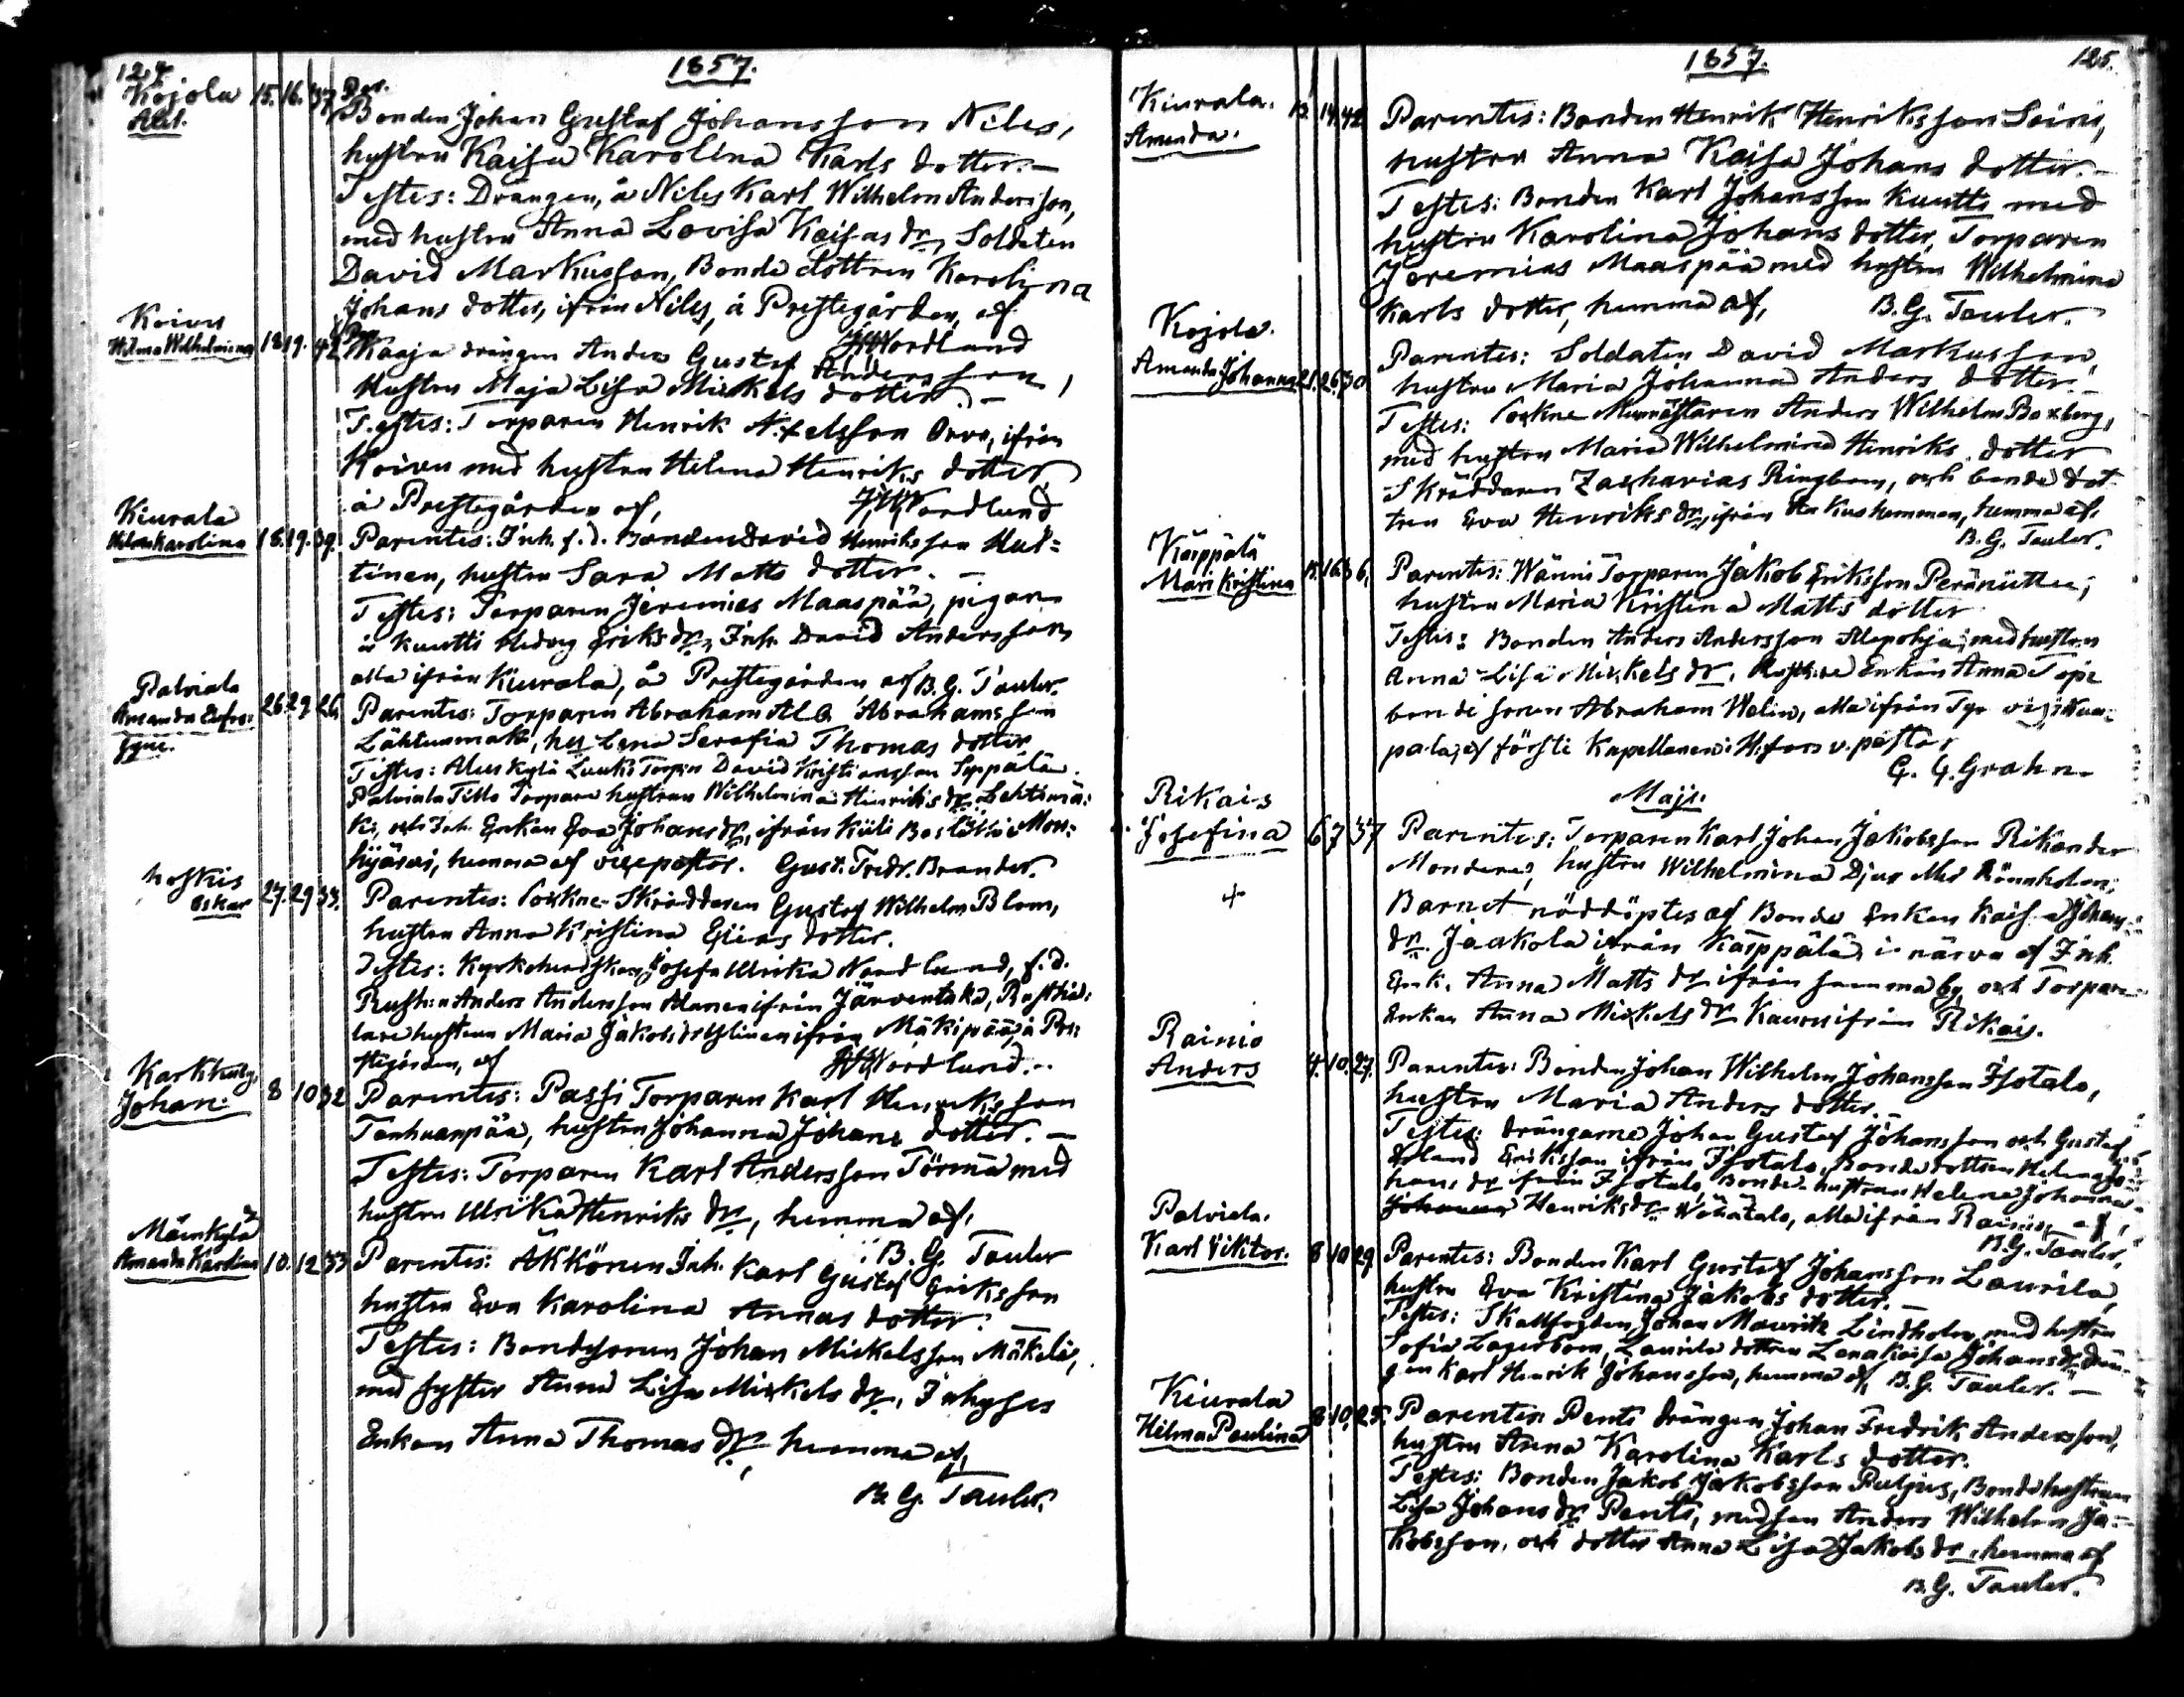 124
1857.
Kojola 15. 16. 37 Par.
Alel. Bonden Johan Gustaf Johansson Niles,
hustru Kaisa Karolina Karls dotter.-
Testes: Drängen, å Niles Karl Wilhelm Andersson,
med hustru Anna Lovisa Kaisas dr, Soldaten
David Markusson, Bonde dottren Karolina
Johans dotter, ifrån Niles, å Prestegården, af
JHNordland
Koivu
Hilma Wilhelmina 18 19. 42 Kaaja drängen Anders Gustaf Andersson,
Hustru Maja Lisa Mickels dotter.-
Testes: Torparen Henrik Axelsson Orvo, ifrån
Koivu med hustru Helena Henriks dotter
å Prestegården af, JHNordlund
Kiurala
Hilma Karolina 18. 19. 39. Parentes: Inh. f.d. Bonden David Henriksson Hut=
tinen, hustru Sara Matts dotter.-
Testes: Torparen Jeremias Maaspää, pigan
å Kuutti Hedvig Eriks dr, Inh. David Andersson
alla ifrån Kiurala, å Prestegården af B. G. Tauler.
Palviala
Amanda Eufro=
syne. 26. 29. 26 Parentes: Torparen Abraham Alb. Abrahamsson
Lähteenmäki, hu Lena Serafia Thomas dotter
Testes: Aluskylä Luuki Torpn David Kristiansson Seppälä
Palviala Tillo Torpare hustrun Wilhelmina Henriks dr Lehtimä=
ki, och Inh. Enkan Eva Johans dr, ifrån Küli Böle i Mou=
hijärvi, hemma af vicepastor. Gust. Fredr. Brander.
Hoskis
Oskar 27. 29 33. Parentes: Sockne-Skräddaren Gustaf Wilhelm Blom,
hustru Anna Kristina Elias dotter.
Testes: Kyrkoherdskan Josefa Ulrika Nordlund, f.d.
Rusth:n Anders Andersson Mannen ifrån Järventaka, Rusthål=
lare hustrun Maria Jakobs dr Yliven ifrån Mäkipää, å Pre=
stegården, af JHNordlund.-
Karkkuby.
Johan. 8 10 32 Parentes: Passi Torparen Karl Henriksson
Tanhuanpää, hustru Johanna Johans dotter.-
Testes: Torparen Karl Andersson Törmä med
hustru Ulrika Henriks dr, hemma af,
B. G. Tauler
Mäenkylä
Amanda Karolina 10. 12 33 Parentes: Äkkönen Inh. Karl Gustaf Eriksson
hustru Eva Karolina Annas dotter.
Testes: Bondesonen Johan Mickelsson Mäkelä,
med syster Anna Lisa Mickels dr, Inhyses
Enkan Anna Thomas dr hemma af,
B. G. Tauler.
1857.
125.
Kiurala. 13. 14. 42 Parentes: Bonden Henrik Henriksson Soini,
Amanda. hustru Anna Kaisa Johans dotter.-
Testes: Bonden Karl Johansson Kuutti med
hustru Karolina Johans dotter, Torparen
Jeremias Maaspää med hustru Wilhelmina
Karls dotter, hemma af, B. G. Tauler.
Kojola.
Amanda Johanna 21. 26. 30 Parentes: Soldaten David Markusson,
hustru Maria Johanna Anders dotter.-
Testes: Sockne Murmästaren Anders Wilhelm Boxberg,
med hustru Maria Wilhelmina Henriks dotter
Skräddaren Zacharias Ringbom, och bonde dot
tren Eva Henriks dr, ifrån hemma af.
B. G. Tauler.
Käppälä
Mari Kristina 15. 16. 36. Parentes: Wänni Torparen Jakob Eriksson Peräniittu,
hustru Maria Kristina Matts dotter
Testes: Bonden Anders Andersson Alapohja, med hustru
Anna Lisa Mickels dr. Enkan Anna
bonde sonen Abraham Welin, alla ifrån
af förste Kapellanen i H:fors v. pastor
G. G. Grahn.
Maji.
Rikais
Josefina 6 7 37 Parentes: Torparen Karl Johan Jakobsson Rikander
+ hustru Wilhelmina Rönnholm,
Barnet nöddöptes af Bonde Enkan Kaisa Johans
dr. Jaakola ifrån Käppälä i närva af Inh.
Enk. Anna Matts dr ifrån samma by och Torpare
Enkan Anna Mickels dr Kauni ifrån Rikais.
Rainio
Anders 4. 10. 27. Parentes: Bonden Johan Wilhelm Johansson Isotalo,
hustru Maria Anders dotter.-
Testes: drängarne Johan Gustaf Johansson och Gustaf
Erland Eriksson ifrån Isotalo, Bonde dottren Helena Jo=
hans dr ifrån Isotalo, Bonde-hustrun Helena Johanna
Henriks dr Wähätalo, alla ifrån Rainio, af,
B. G. Tauler,
Palviala.
Karl Viktor. 8 10 29. Parentes: Bonden Karl Gustaf Johansson Laurila,
hustru Eva Kristina Jakobs dotter.-
Testes: Skallfogden Johan Maurits Lindholm med hustru
Sofia Lagerbom, Laurila dottren Lena Kaisa Johans dr, drän=
gen Karl Henrik Johansson, hemma af, B. G. Tauler.-
Kiurala
Hilma Paulina 8 10, 25. Parentes: Penti drängen Johan Fredrik Andersson,
hustru Anna Karolina Karls dotter.
Testes: Bonden Jakob Jakobsson Puljus, Bonde hustrun
Lisa Johans dr Penti, med son Anders Wilhelm Ja=
kobsson, och dotter Anna Lisa Jakobs dr, hemma af
B. G. Tauler.